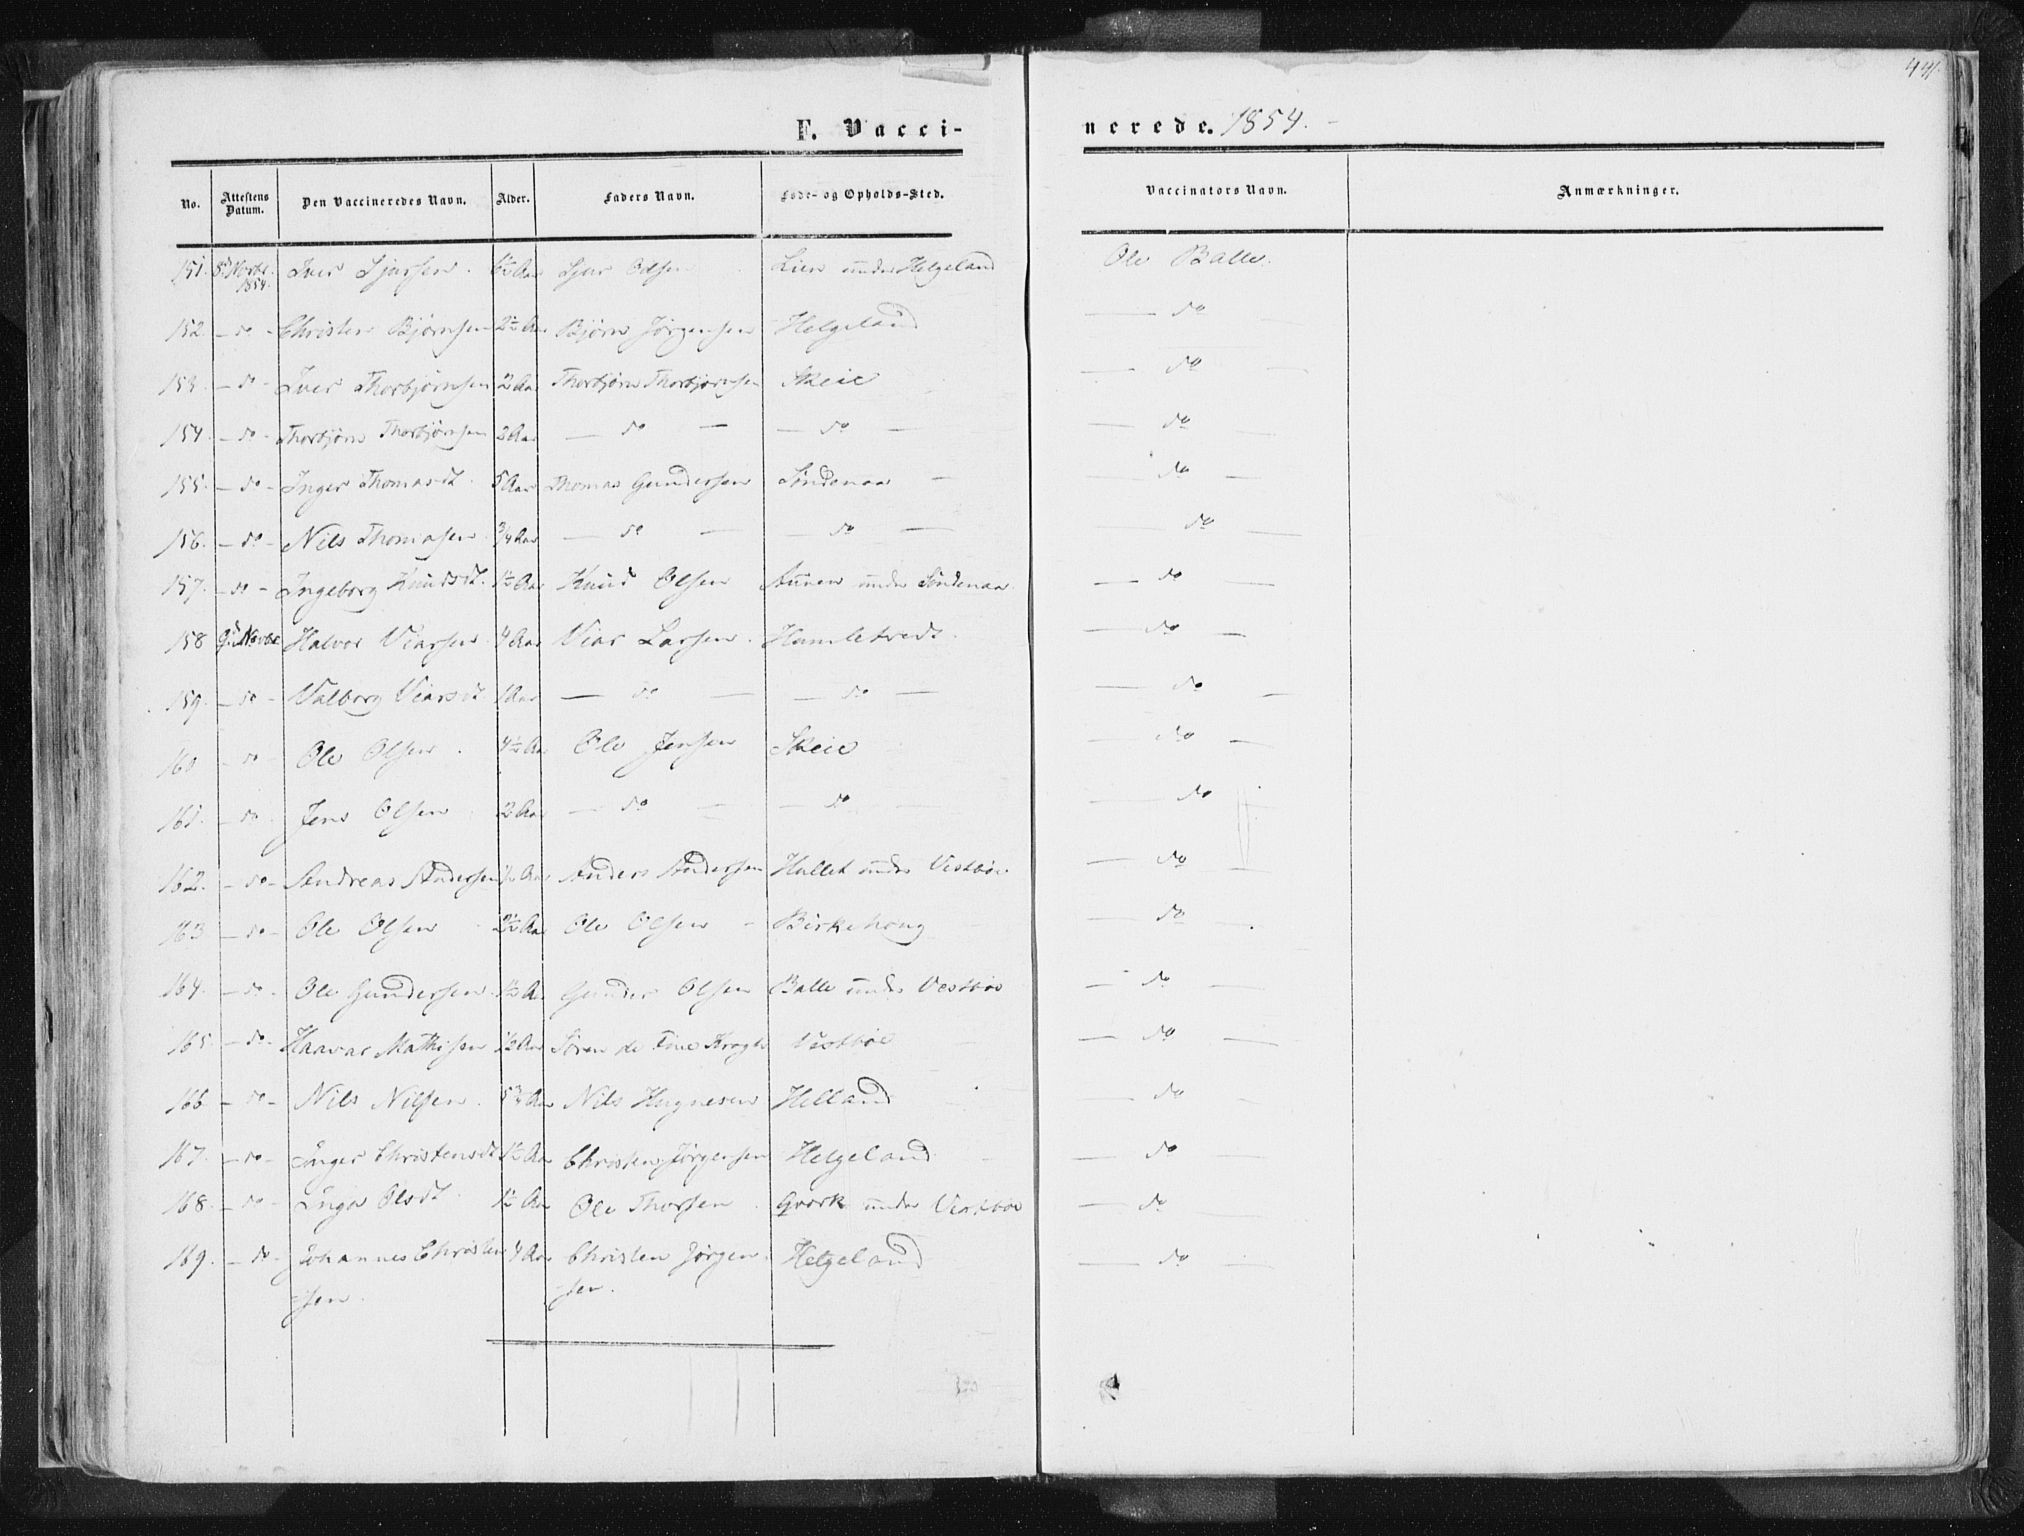 441.
F. Vaccinerede. 1854.
No. Attestens Datum. Den Vaccineredes Navn. Alder. Faders Navn. Føde- og Opholds-Sted. Vaccinators Navn. Anmærkninger.
151. 8d Novbr. 1854. Iver Sjursen. 6½ Aar Sjur Odsen Lien under Helgeland Ole Balle.
152 - do - Christen Bjørnsen 2½ Aar Bjørn Jørgensen Helgeland do
153. - do - Iver Thorbjørnsen 2 Aar Thorbjørn Thorbjørnsen Skeie do
154. - do - Thorbjørn Thorbjørnsen 2 Aar - do - - do - do
155. - do - Inger Thomasdt. 5 Aar Thomas Gundersen Søndenaa do
156. - do - Nils Thomasen ¾ Aar - do - - do - do
157. - do - Ingeborg Knudsdt. 1½ Aar Knud Olsen under Søndenaa do
158 9d Novbr Halvor Viarsen 4 Aar Viar Larsen. do
159. - do - Valborg Viarsdt 1 Aar - do - - do - do
160 - do - Ole Olsen. 4½ Aar Ole Jensen Skeie do
161. - do - Jens Olsen 2 Aar - do - - do - do
162. - do - Andreas Andersen ½ Aar Anders Andersen Hallet under Vestbøe do
163 - do - Ole Olsen 2½ Aar Ole Olsen - Birkehoug do
164. - do - Ole Gundersen. 1½ A. Gunder Olsen Balle under Vestbøe do
165. - do - Haavar Mathisen 1½ Aar Søren de Fine Vestbøe do
166 - do - Nils Nilsen. 5¾ Aar Nils Helland do
167. - do - Inger Christensdt 1½ Aar Christen Jørgensen Helgeland do
168. - do - Inga Olsdt. 1½ Aar Ole Thorsen. Qvark under Vestbøe do
169. - do - Johannes Christen 4 Aar Christen Jørgen- Helgeland do
-sen. sen.